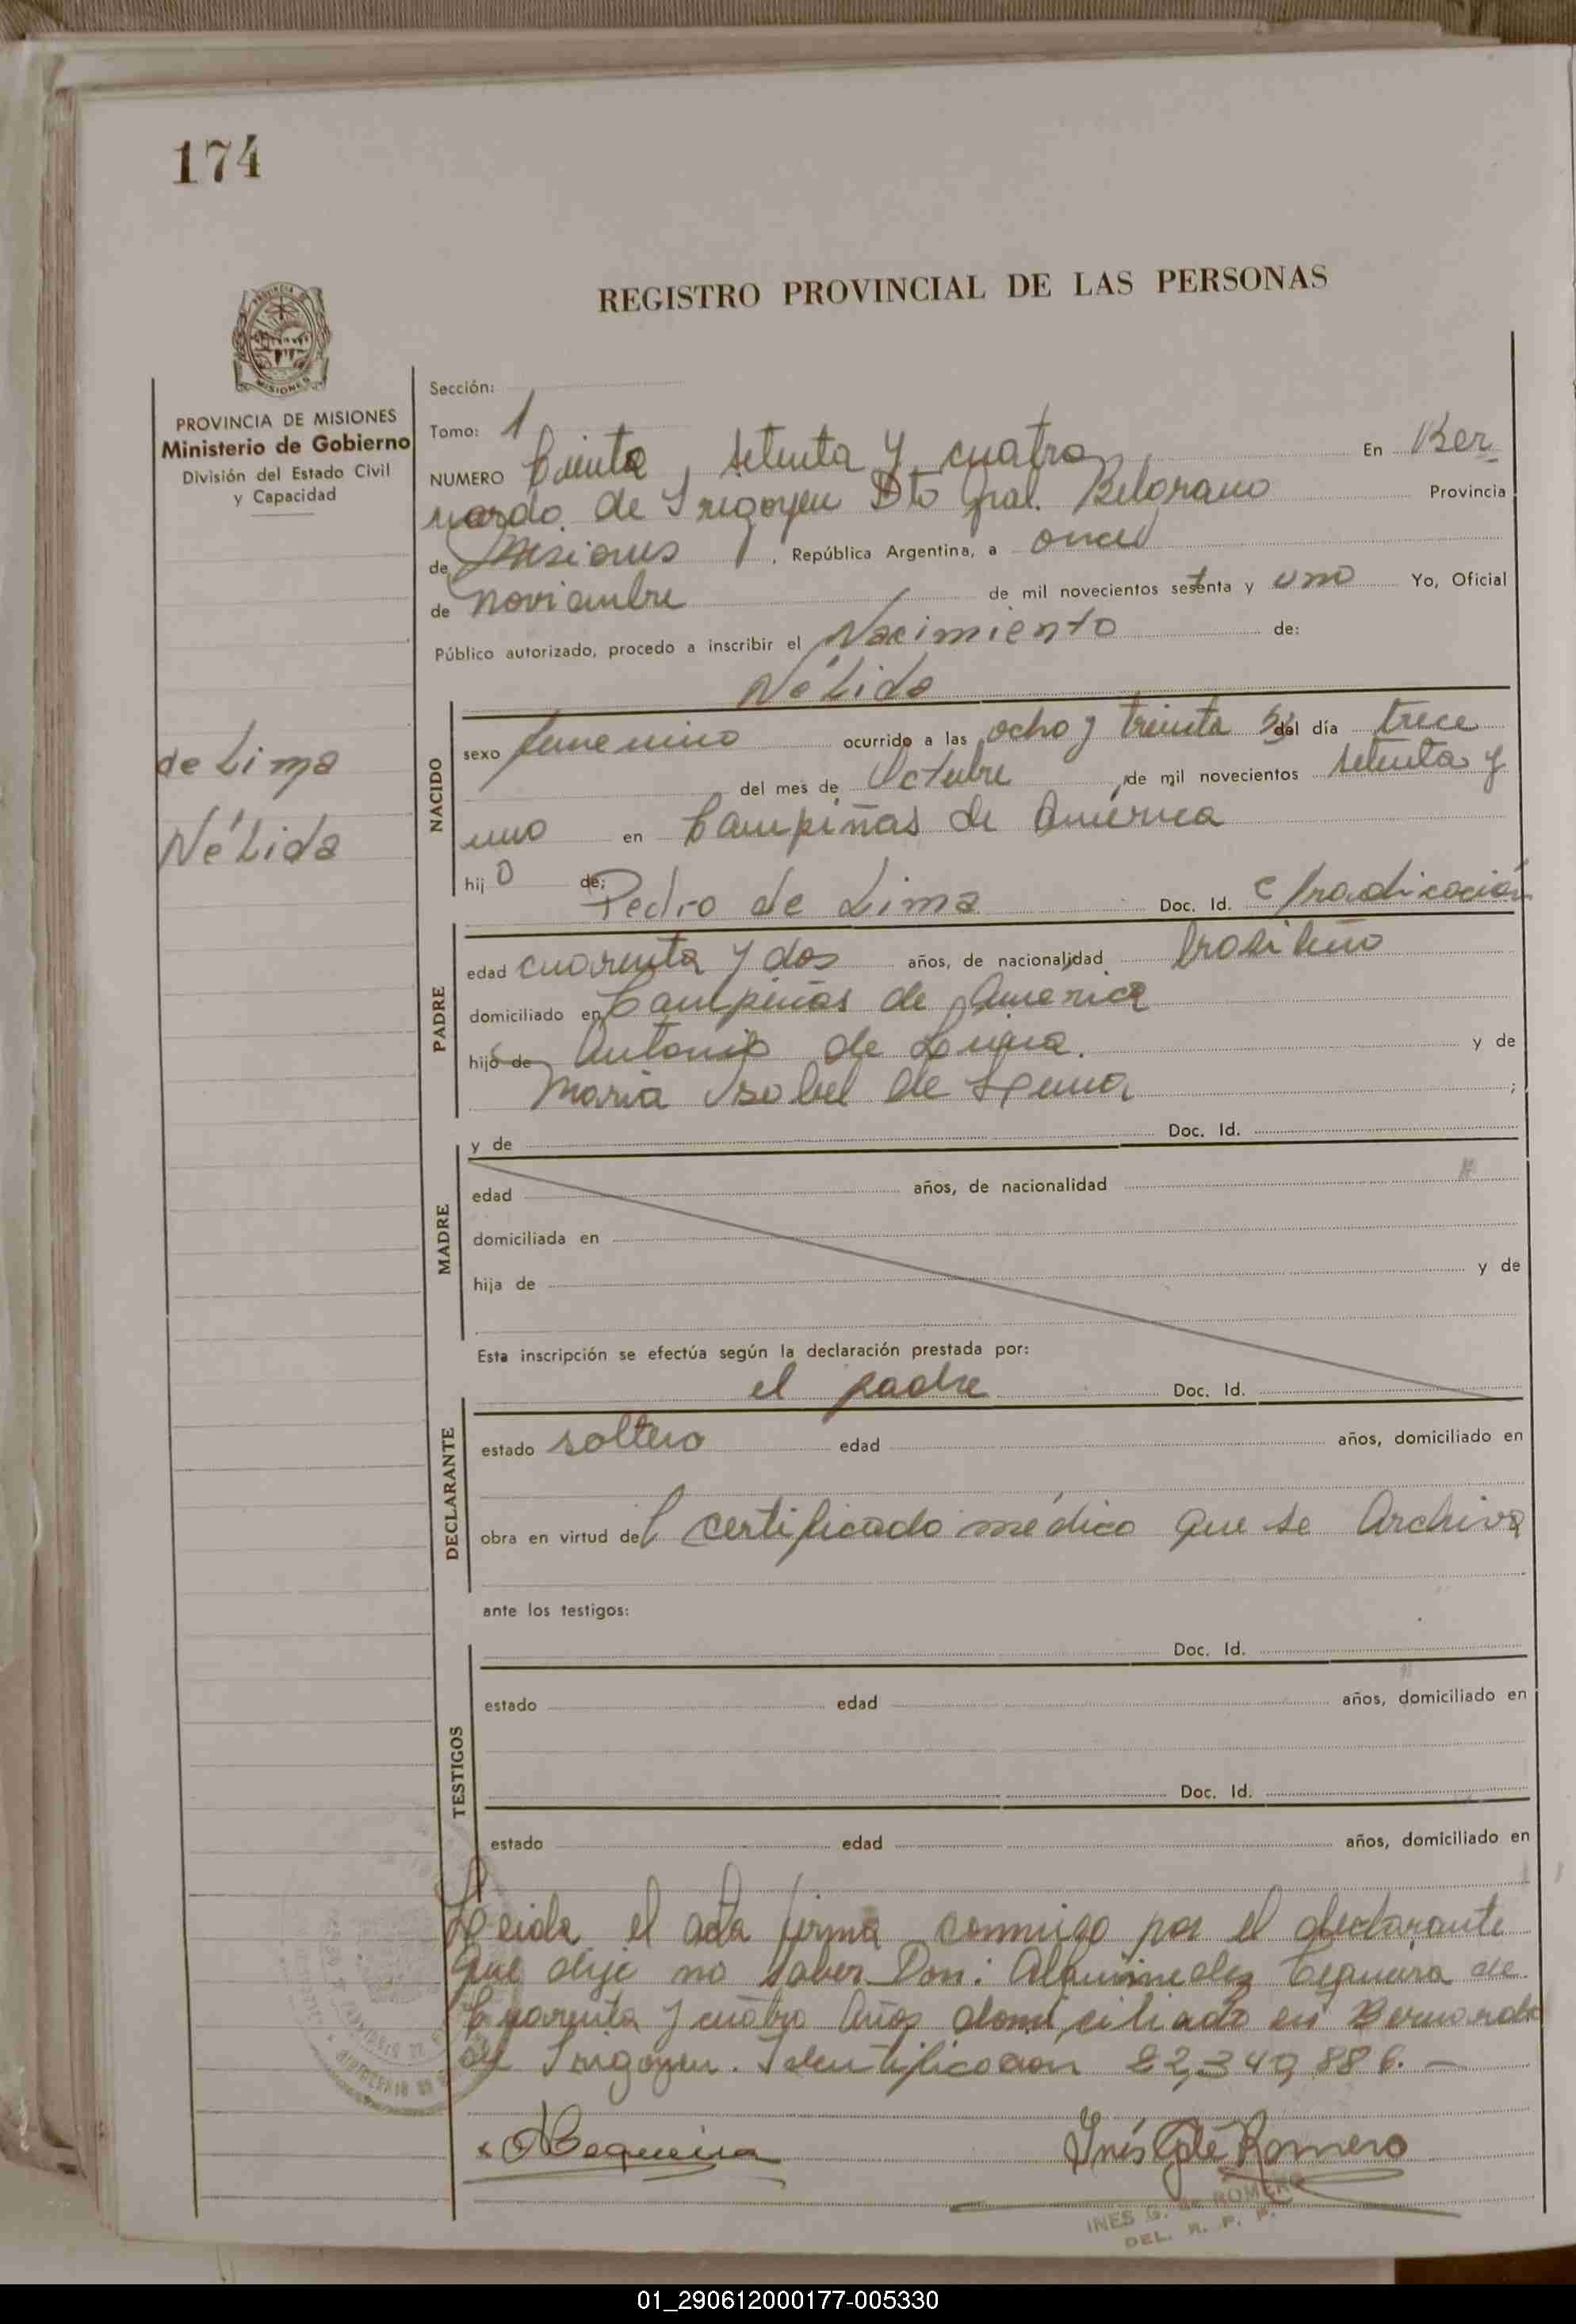 174
REGISTRO PROVINCIAL DE LAS PERSONAS
MISIONES
PROVINCIA DE MISIONES
Ministerio de Gobierno
División del Estado Civil
y Capacidad
de Lima
Nélida
Sección:
Tomo: 1
NUMERO Ciento, setenta y cuatro En Ber
nardo de Irigoyen Dto Gral. Belgrano Provincia
de Misiones, República Argentina, a once
de noviembre de mil novecientos setenta y uno Yo, Oficial
Público autorizado, procedo a inscribir el Nacimiento de:
Nélida
NACIDO
sexo femenino ocurrido a las ocho y treinta del día trece
del mes de Octubre, de mil novecientos setenta y
uno en Campiñas de América
hijo de: Pedro de Lima Doc. Id. c/radicación
PADRE
edad cuarenta y dos años, de nacionalidad brasileño
domiciliado en Campiñas de America
hijo de Antonio de Lima. y de
Maria Isabel de Lima ;
MADRE
y de Doc. Id.
edad años, de nacionalidad
domiciliada en
hija de y de
Esta inscripción se efectúa según la declaración prestada por:
el padre Doc. Id.
DECLARANTE
estado soltero edad años, domiciliado en
obra en virtud del certificado médico que se Archiva
ante los testigos:
TESTIGOS
Doc. Id.
estado edad años, domiciliado en
Doc. Id.
estado edad años, domiciliado en
Leida el acta firma conmigo por el declarante
que dijo no saber Don: de
Cuarenta y cuatro Años domiciliado en Bernardo
de Irigoyen. Identificacion
Inés G de Romero
INES G. de ROMERO
DEL. R. P. P.
01_290612000177-005330